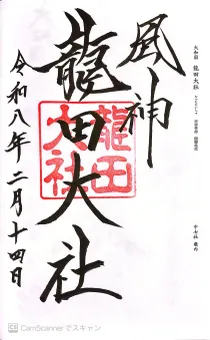 大和國 龍田大社
風神
龍田大社
龍田
大社
令和八年二月十四日
CS CamScannerでスキャン